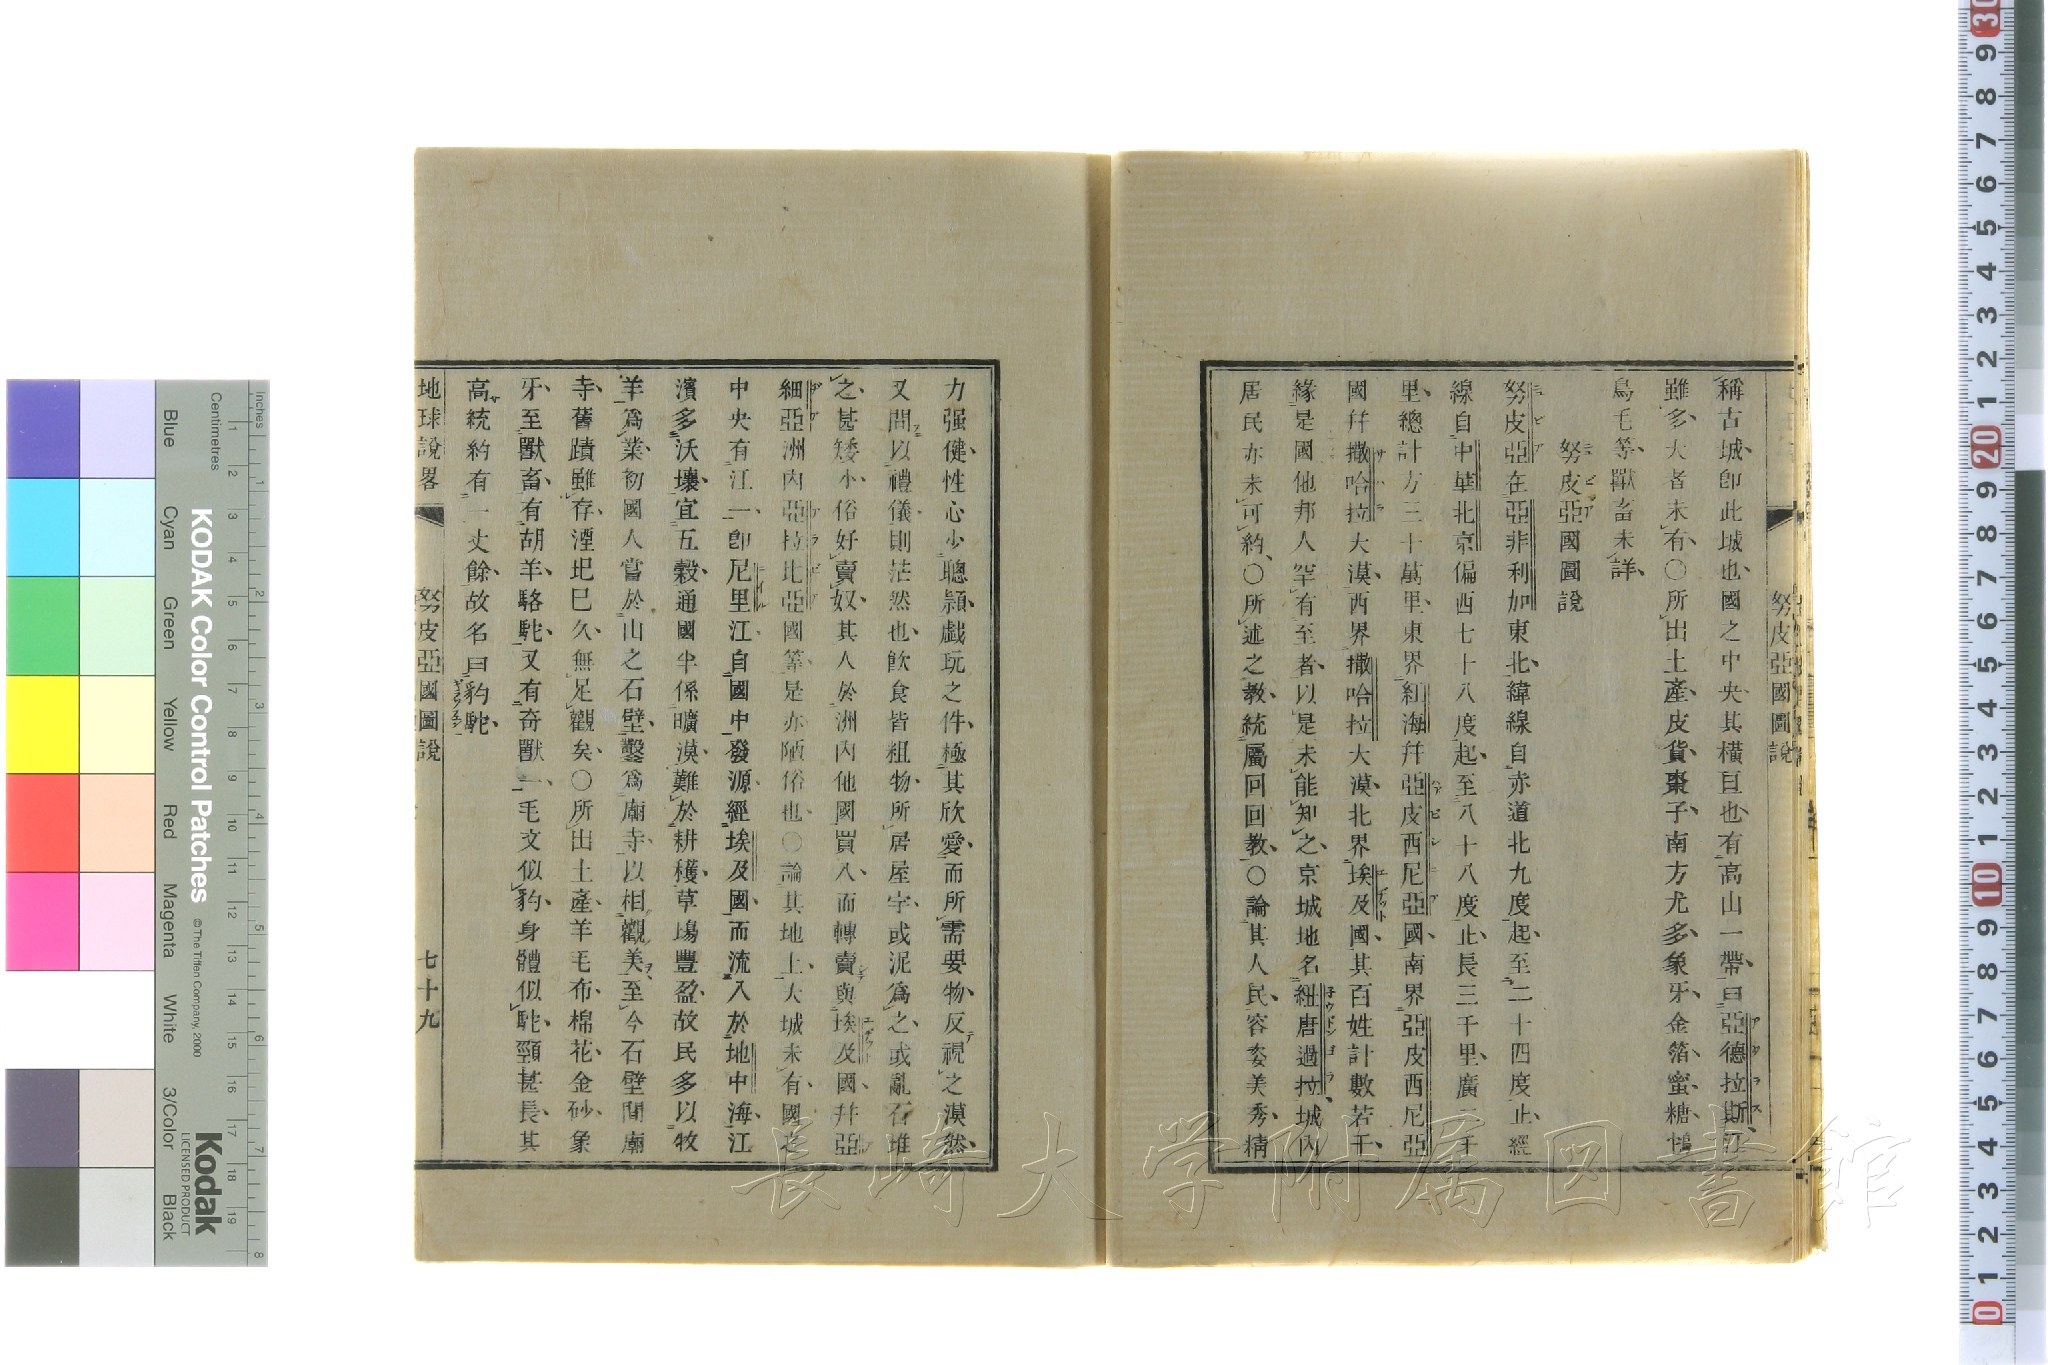 努皮亞國圖說
稱古城卽此城也國之中央其橫亘也有高山一帶曰亞德拉斯江
雖多大者未有〇所出土產皮貨棗子南方尤多象牙金箔蜜糖鴕
鳥毛等獸畜未詳
努皮亞國圖說
努皮亞在亞非利加東北緯線自赤道北九度起至二十四度止經
線自中華北京偏西七十八度起至八十八度止長三千里廣二千
里總計方三十萬里東界紅海幷亞皮西尼亞國南界亞皮西尼亞
國幷撒哈拉大漠西界撒哈拉大漠北界埃及國其百姓計數若干
緣是國他邦人罕有至者以是未能知之京城地名紐唐過拉城內
居民亦未可約〇所述之教統屬回回教〇論其人民容姿美秀精
力强健性心少聰穎戲玩之件極其欣愛而所需要物反視之漠然
又問以禮儀則茫然也飮食皆粗物所居屋宇或泥爲之或亂石堆
之甚矮小俗好賣奴其人於洲內他國買入而轉賣與埃及國幷亞
細亞洲內亞拉比亞國等是亦陋俗也〇論其地上大城未有國之
中央有江一卽尼里江自國中發源經埃及國而流入於地中海江
濱多沃壤宜五穀通國半係曠漠難於耕穫草塲豐盈故民多以牧
羊爲業初國人嘗於山之石壁鑿爲廟寺以相觀美至今石壁間廟
寺舊蹟雖存湮圯巳久無足觀矣〇所出土產羊毛布棉花金砂象
牙至獸畜有胡羊駱駝又有奇獸一毛文似豹身體似駝頸甚長其
高統約有一丈餘故名曰豹駝
地球說畧 努皮亞國圖說 七十九
KODAK Color Control Patches
© The Tiffen Company, 2000
Kodak
LICENSED PRODUCT
Inches
Centimetres
Blue Cyan Green Yellow Red Magenta White 3/Color Black
長崎大学附属図書館